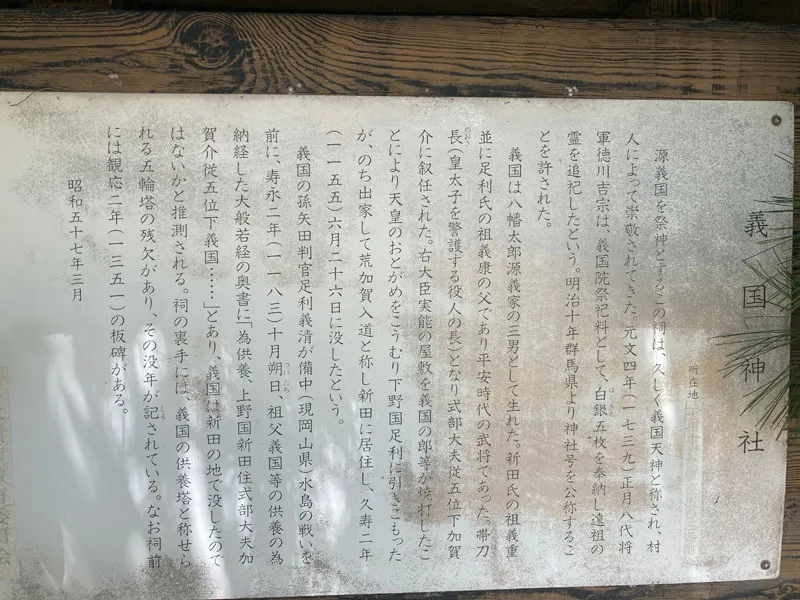 義国神社
所在地
源義国を祭神とするこの祠は、久しく義国天神と称され、村
人によって崇敬されてきた。元文四年(一七三九)正月八代将
軍徳川吉宗は、義国院祭祀料として、白銀五枚を奉納し遠祖の
霊を追祀したという。明治十年群馬県より神社号を公称するこ
とを許された。
義国は八幡太郎源義家の三男として生れた。新田氏の祖義重
並に足利氏の祖義康の父であり平安時代の武将であった。帯刀
長(皇太子を警護する役人の長)となり式部大夫従五位下加賀
介に叙任された。右大臣実能の屋敷を義国の郎等が焼打したこ
とにより天皇のおとがめをこうむり下野国足利に引きこもった
が、のち出家して荒加賀入道と称し新田に居住し、久寿二年
(一一五五)六月二十六日に没したという。
義国の孫矢田判官足利義清が備中(現岡山県)水島の戦いを
前に、寿永二年(一一八三)十月朔日、祖父義国等の供養の為
納経した大般若経の奥書に「為供養、上野国新田住式部大夫加
賀介従五位下義国……」とあり、義国は新田の地で没したので
はないかと推測される。祠の裏手には、義国の供養塔と称せら
れる五輪塔の残欠があり、その没年が記されている。なお祠前
には観応二年(一三五一)の板碑がある。
昭和五十七年三月